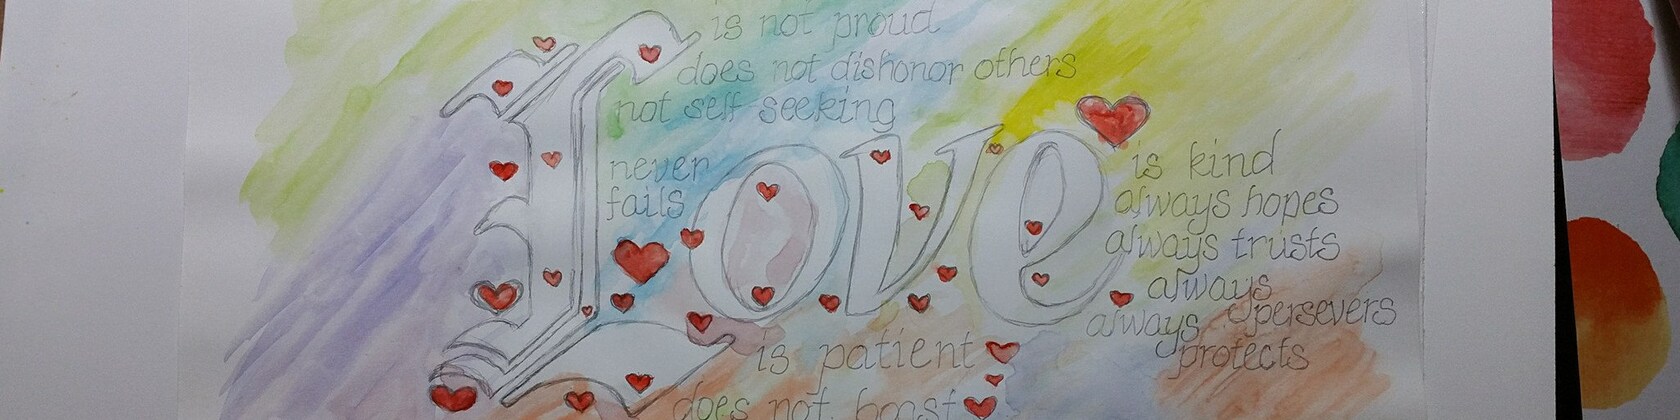 is not proud
does not dishonor others
not self-seeking
never
fails
Love
is kind
always hopes
always trusts
always
persevers
always
protects
is patient
does not boast